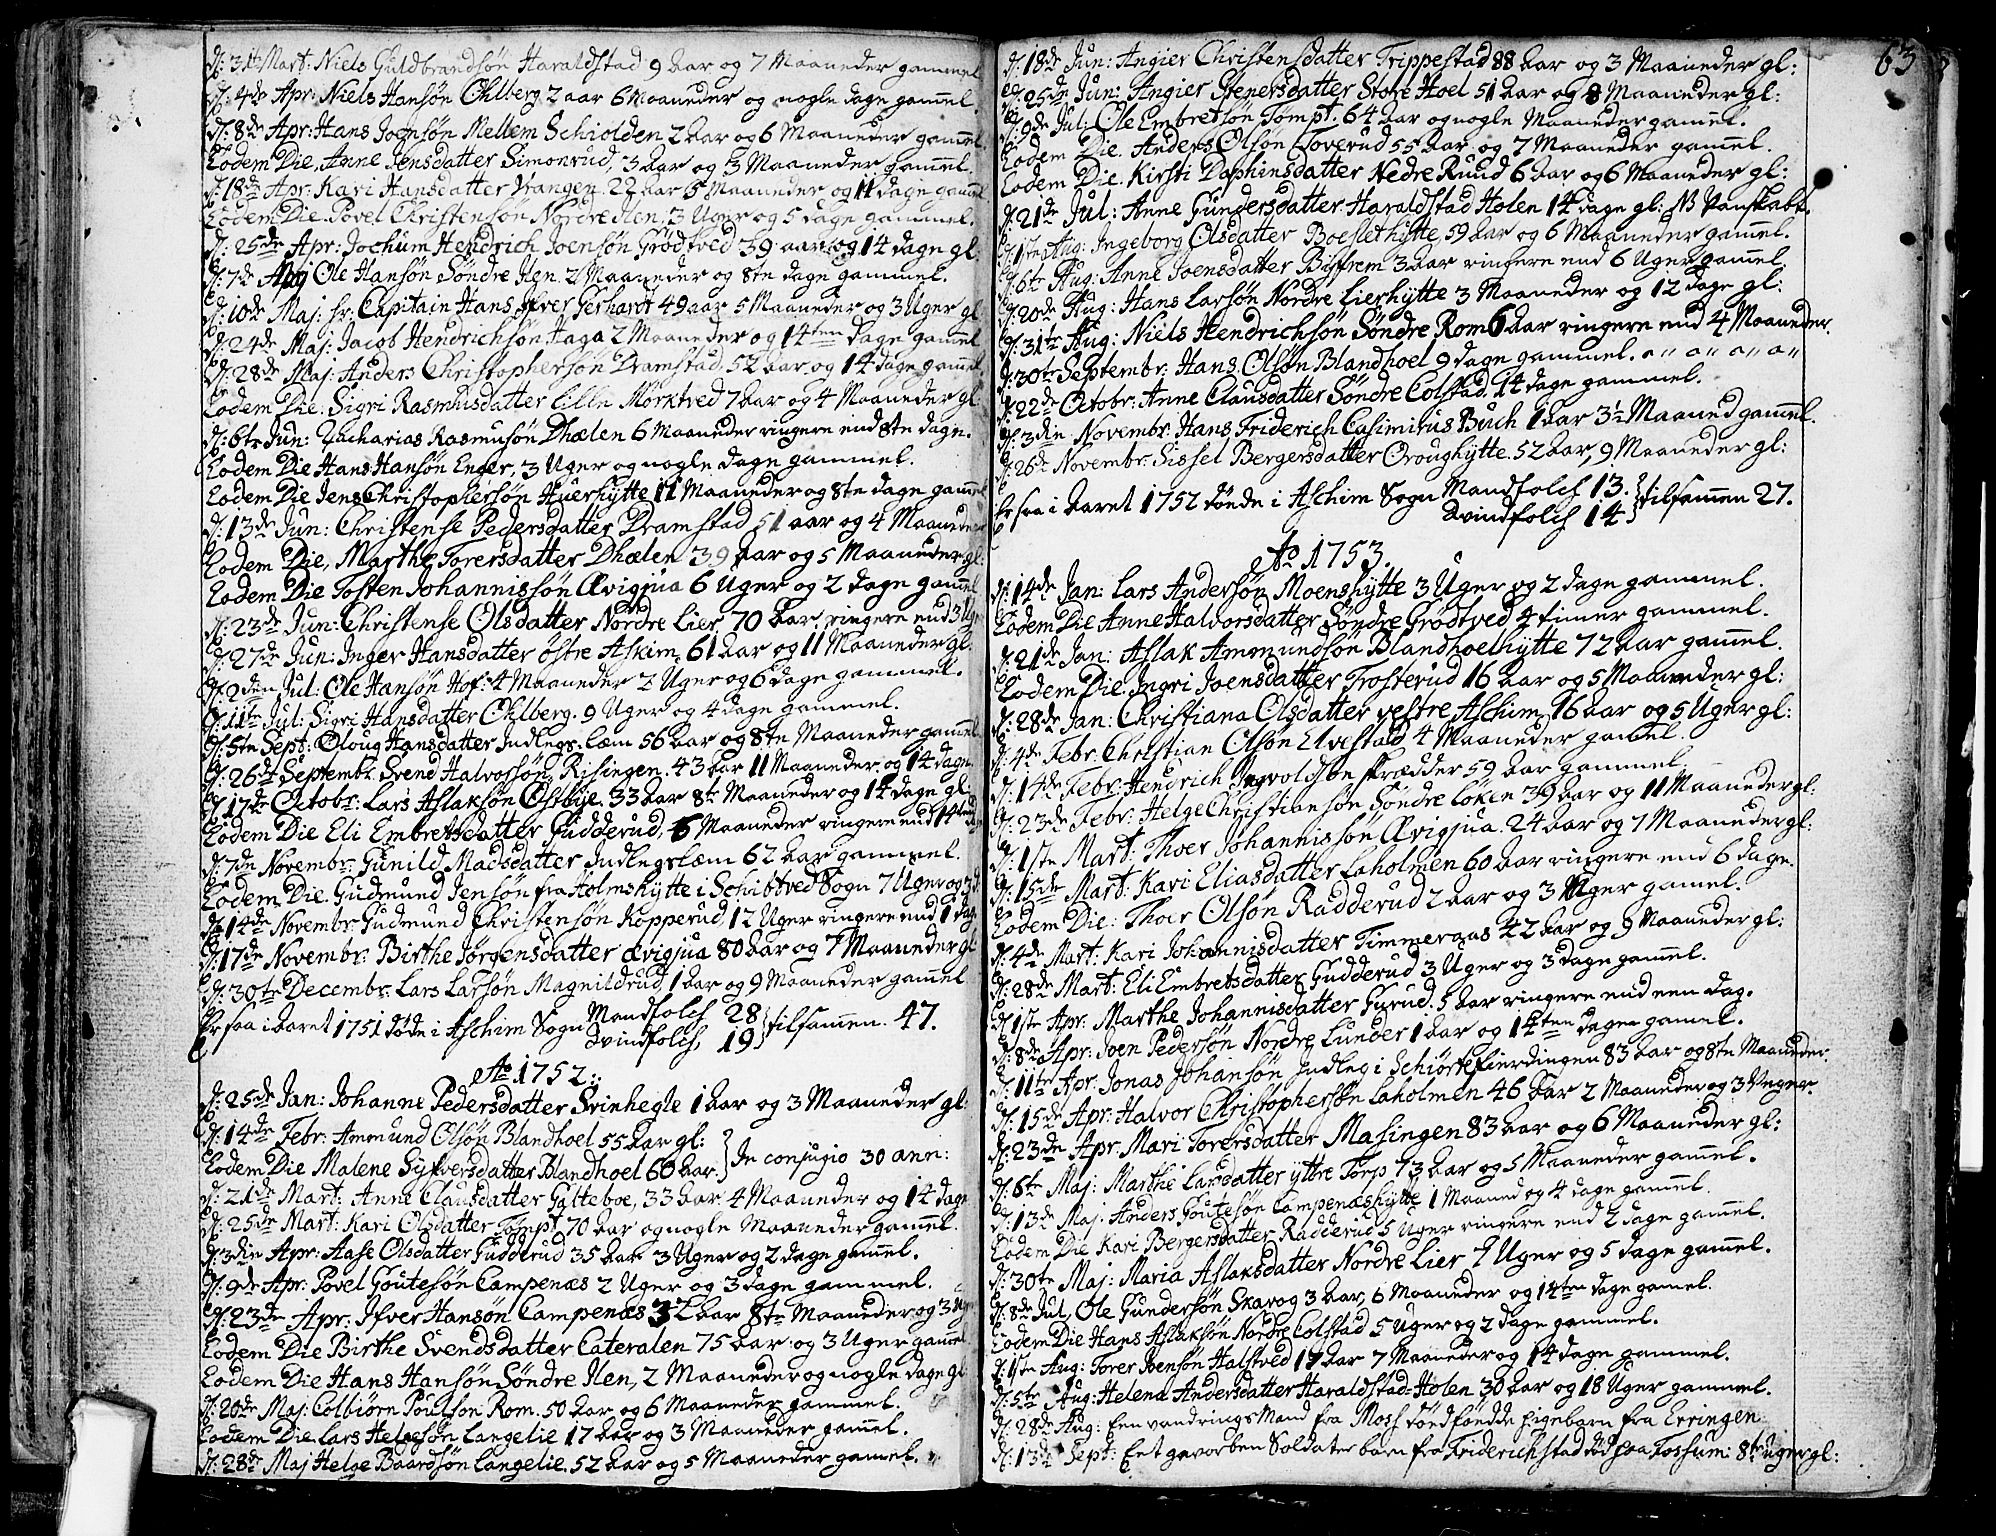 d: 31te Mart: Niels Guldbrandsøn Haraldstad 9 Aar og 7 Maaneder gammel
d: 4de Apr: Niels Hansøn Ohlberg 2 aar 6 Maaneder og nogle dage gam̄el.
d: 8de Apr: Hans Joensøn Mellem Schiolden 2 Aar og 6 Maaneder gam̄el
Eodem Die, Anne Jensdatter Simonrud, 3 Aar og 3 Maaneder gam̄el.
d: 18de Apr: Kari Hansdatter Vrangen. 22 Aar 5 Maaneder og 11 dage gam̄el
Eodem Die. Povel Christensøn Nordre Ilen, 3 Uger og 5 dage gammel.
d: 25de Apr: Jochum Hendrich Joensøn Grødtved 39 aar og 14 dage gl.
d: 7de Maj Ole Hansøn Søndre Ilen 2 Maaneder og 8te dage gammel.
d: 10de Maj: hr. Capitain Hans Iver Gerhardt 49 aar 5 Maaneder og 3 Uger gl
d: 24de Maj: Jacob Hendrichsøn Haga 2 Maaneder og 14ten dage gam̄el
d: 28de Maj: Anders Christophersøn Dramstad, 52 Aar og 14 dage gam̄el.
Eodem Die: Sigri Rasmusdatter Lille Mørktved 7 Aar og 4 Maaneder gl
d: 6te Jun: Zacharias Rasmusøn Dhælen 6 Maaneder ringere end 8te dage.
Eodem Die Hans Hansøn Enger, 3 Uger og nogle dage gammel.
Eodem Die Jens Christophersøn Huerhytte 11 Maaneder og 8te dage gam̄el
d: 13de Jun: Christense Pedersdatter Dramstad 51 aar og 4 Maaneder
Eodem Die, Marthe Torersdatter Dhælen 39 Aar og 5 Maaneder gl:
Eodem Die Tosten Johannissøn Ævigjua 6 Uger og 2 dage gam̄el
d: 23de Jun: Christense Olsdatter Nordre Lier 70 Aar ringere end 3 Uger
d: 27de Jun: Inger Hansdatter østre Askim, 61 Aar og 11 Maaneder gl.
d: 2den Jul: Ole Hansøn Hof: 4 Maaneder 2 Uger og 6 dage gammel.
d: 11te Jul: Sigri Hansdatter Ohlberg. 9 Uger og 4 dage gammel.
d: 5te Sept: Oloug Hansdatter Indlegs-læm 56 Aar og 8te Maaneder gam̄el
d: 26de Septembr. Svend Halvorsøn Risingen. 43 Aar 11 Maaneder og 14 dage
d: 17de Octobr: Lars Aslaksøn Østbye. 33 Aar 8te Maaneder og 14 dage gl:
Eodem Die Eli Embretsdatter Gudderud, 5 Maaneder ringere end 14ten
d: 7de Novembr: Gunild Madsdatter Indlegslæm 62 Aar gammel.
Eodem Die. Gudmund Jensøn fra Holmshytte i Schibtved Sogn 7 Uger og 3 d.
d: 14de Novembr: Gudmund Christensøn Kopperud, 12 Uger ringere end 1 dag
d: 17de Novembr: Birthe Jørgensdatter Ævigjua 80 Aar og 7 Maaneder gl
d: 30te Decembr: Lars Larsøn Magnildrud, 1 Aar og 9 Maaneder gam̄el
Er saa i Aaret 1751 døde i Aschim Sogn Mandfolch 28
Qvindfolch, 19 } tilsammen. 47.
Ao 1752.
d: 25de Jan: Johanne Pedersdatter Svinhegle 1 Aar og 3 Maaneder gl:
d: 14de Febr: Ammund Olsøn Blandhoel 55 Aar gl:
Eodem Die Malene Syfversdatter Blandhoel 60 Aar. } In conjugio 30 ann:
d: 21de Mart: Anne Clausdatter Gatteboe, 33 Aar 4 Maaneder og 14 dage
d: 25de Mart: Kari Olsdatter Tømpt, 70 Aar og nogle Maaneder gam̄el.
d: 3die Apr: Aase Olsdatter Gudderud 35 Aar 3 Uger og 2 dage gam̄el.
d: 9de Apr: Povel Goutesøn Campenæs 2 Uger og 3 dage gammel.
d: 23de Apr: Ifver Hansøn Campenæs 32 Aar 8te Maaneder og 3 Ug
Eodem Die Birthe Svendsdatter Cateralen 75 Aar og 3 Uger gam̄el
Eodem Die Hans Hansøn Søndre Ilen, 2 Maaneder og nogle dage gl
d: 20de Maj: Colbiørn Poulsøn Rom. 50 Aar og 6 Maaneder gammel.
Eodem Die Lars Helgesøn Langelie 17 Aar og 3 Maaneder gam̄el.
d: 28de Maj Helge Baardsøn Langelie. 52 Aar og 5 Maaneder gamel.
63
d: 18de Jun: Angier Christensdatter Trippestad 88 Aar og 3 Maaneder gl:
d: 25de Jun: Angier Stenersdatter Store Hoel 51 Aar og 8 Maaneder gl:
d: 9de Jul: Ole Embretsøn Tømpt. 64 Aar og nogle Maaneder gam̄el.
Eodem Die. Anders Olsøn Loverud 55 Aar og 7 Maaneder gam̄el.
Eodem Die. Kirsti Daphinsdatter Nedre Ruud 6 Aar og 6 Maaneder gl:
d: 21de Jul: Anne Gundersdatter Haraldstad Holen 14 dage gl: NB Vanskabt.
d: 1ste Aug: Ingeborg Olsdatter Boeslethytte, 59 Aar og 6 Maaneder gam̄el.
d: 6te Aug: Anne Joensdatter Bisfrem 3 Aar ringere end 6 Uger gam̄el
d: 20de Aug: Hans Larsøn Nordre Lierhytte 3 Maaneder og 12 dage gl:
d: 31te Aug: Niels Hendrichsøn Søndre Rom 6 Aar ringere end 4 Maaneder.
d: 30te Septembr: Hans Olsøn Blandhoel 9 dage gammel.
d: 22de Octobr: Anne Clausdatter Søndre Colstad. 14 dage gammel.
d: 3die Novembr: Hans Friderich Casimirus Buch 1 Aar 3½ Maaned gam̄el.
d: 26de Novembr: Sissel Bergersdatter Oroughytte. 52 Aar, 9 Maaneder gl:
Er saa i Aaret 1752 døde i Aschim Sogn Mandfolch 13.
Qvindfolch 14 } tilsam̄en 27.
Ao 1753.
d: 14de Jan: Lars Andersøn Moenshytte 3 Uger og 2 dage gammel.
Eodem Die Anne Halvorsdatter Søndre Grødtved 4 timer gammel.
d: 21de Jan: Aslak Amundsøn Blandhoelhytte 72 Aar gam̄el.
Eodem Die: Ingri Joensdatter Trosterud 16 Aar og 5 Maaneder gl:
d: 28de Jan: Christiana Olsdatter vestre Aschim, 16 Aar og 5 Uger gl:
d: 4de Febr: Christian Olsøn Elvestad 4 Maaneder gam̄el.
d: 14de Febr: Hendrich Ingvoldsøn skrædder 59 Aar gammel.
d: 23de Febr: Helge Christiansøn Søndre Løken 39 Aar og 11 Maaneder gl:
d: 1ste Mart: Thoer Johannissøn Ævigjua. 24 Aar og 7 Maaneder gl:
d: 15de Mart: Kari Eliasdatter Laholmen 60 Aar ringere end 6 dage.
Eodem Die: Thoer Olsøn Radderud 2 Aar og 3 Uger gamel.
d: 4de Mart: Kari Johannisdatter Timmeraas 42 Aar og 9 Maaneder gl:
d: 28de Mart: Eli Embretsdatter Gudderud 3 Uger og 3 dage gam̄el.
d: 1ste Apr: Marthe Johannisdatter Gurud. 5 Aar ringere end een dag.
d: 8de Apr: Joen Pedersøn Nordre Lunder 1 Aar og 14ten dage gamel.
d: 11te Apr: Jonas Johansøn Indleg i Schiørtefierdingen 83 Aar og 8te Maaneder.
d: 15de Apr: Halvor Christophersøn Laholmen 46 Aar 2 Maaneder og 3 Uger.
d: 23de Apr: Mari Torersdatter Masingen 83 Aar og 6 Maaneder gl:
d: 6te Maj: Marthe Larsdatter yttre Torp 73 Aar og 5 Maaneder gam̄el.
d: 13de Maj: Anders Goutesøn Campenæshytte 1 Maaned og 4 dage gam̄el.
Eodem Die Kari Bergersdatter Radderud 5 Uger ringere end 2 dage gam̄el.
d: 30te Maj: Maria Aslaksdatter Nordre Lier 7 Uger og 5 dage gam̄el.
d: 8de Jul, Ole Gundersøn Skavog 3 Aar, 6 Maaneder og 14ten dage gamel.
Eodem Die Hans Aslaksøn Nordre Colstad 5 Uger og 2 dage gammel.
d: 1ste Aug: Torer Joensøn Halstved 17 Aar 7 Maaneder og 14 dage gammel.
d: 5te Aug: Helena Andersdatter Haraldstad-Holen 30 Aar og 18 Uger gammel.
d: 28de Aug: Een vandrings Mand fra Moss dødfødde pigebarn fra Erringen
d: 13de Sept: Eet Soldater barn fra Friderichstad død paa Fossum: 8te uger gl: